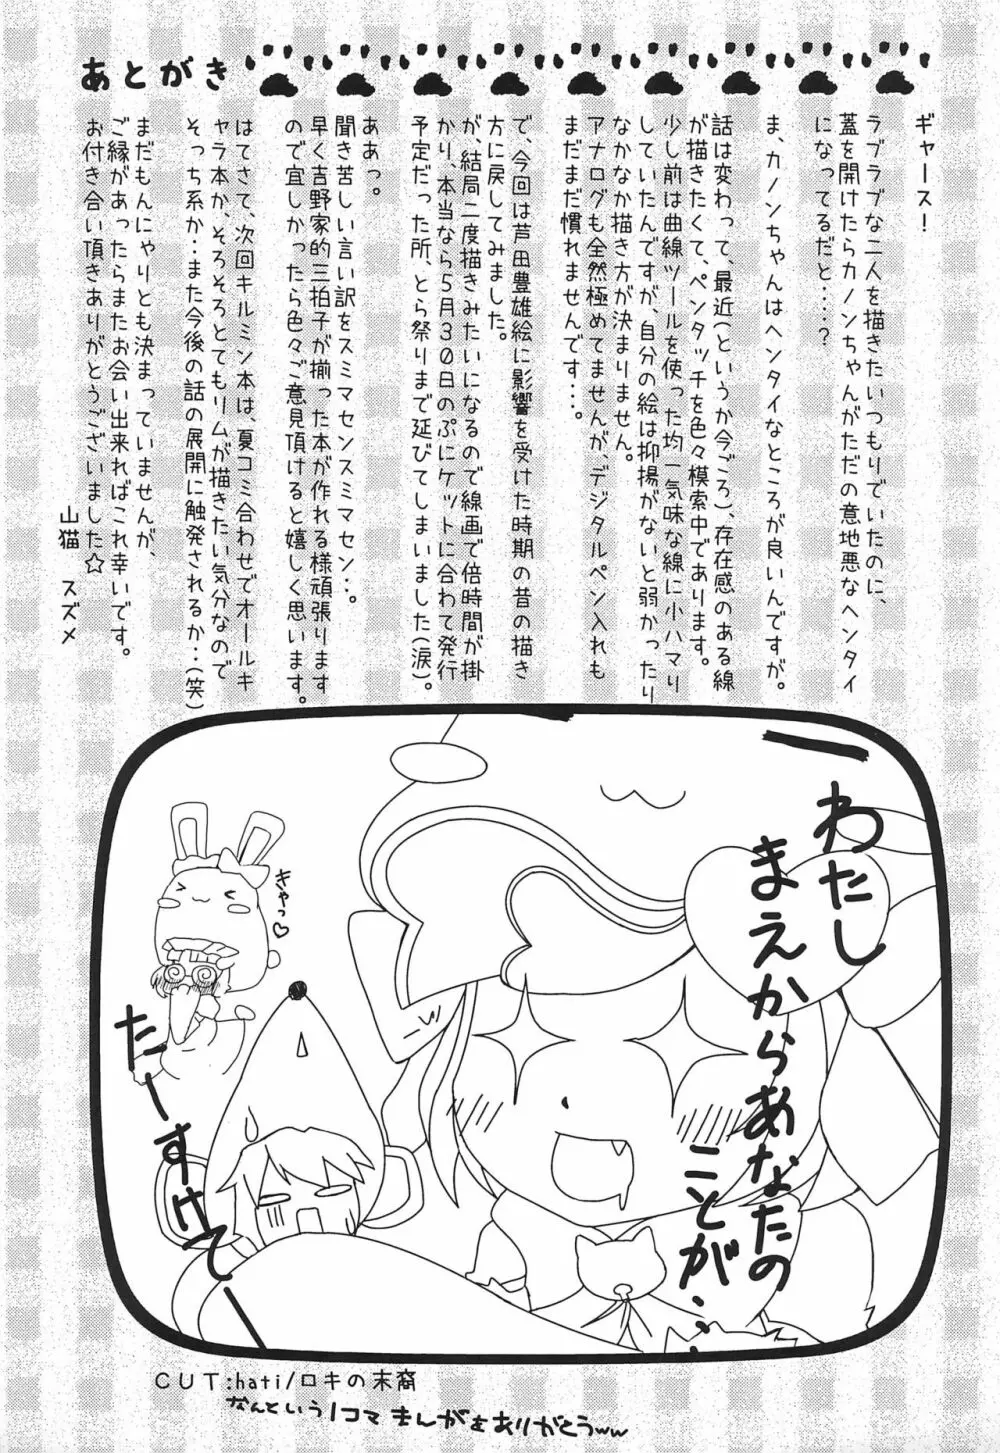 あとがき
ギャース！
ラブラブな二人を描きたいつもりでいたのに、
蓋を開けたらカノンちゃんがただの意地悪なヘンタイ
になってるだと・・・・？
ま、カノンちゃんはヘンタイなところが良いんですが。
話は変わって、最近（というか今ごろ）、存在感のある線
が描きたくて、ペンタッチを色々模索中であります。
少し前は曲線ツールを使った均一気味な線に小ハマり
していたんですが、自分の絵は抑揚がないと弱かったり
なかなか描き方が決まりません。
アナログも全然極めてませんが、デジタルペン入れも
まだまだ慣れませんです・・・。
で、今回は芦田豊雄絵に影響を受けた時期の昔の描き
方に戻してみました。
が、結局二度描きみたいになるので線画で倍時間が掛
かり、本当なら５月３０日のぷにケットに合わせて発行
予定だった所、とら祭りまで延びてしまいました（涙）。
ああっ。
聞き苦しい言い訳をスミマセンスミマセン・・。
早く吉野家的三拍子が揃った本が作れる様頑張ります
ので宜しかったら色々ご意見頂けると嬉しく思います。
はてさて、次回キルミン本は、夏コミ合わせでオールキ
ャラ本か、そろそろとてもリムが描きたい気分なので
そっち系か・・また今後の話の展開に触発されるか・・（笑）
まだもんにゃりとも決まっていませんが、
ご縁があったらまたお会い出来ればこれ幸いです。
お付き合い頂きありがとうございました☆
山猫　スズメ
わたし
まえからあなたの
ことが・・・
きゃっ♡
たーすけてー
ＣＵＴ：hati/ロキの末裔
なんという１コマ まんがをありがとうww